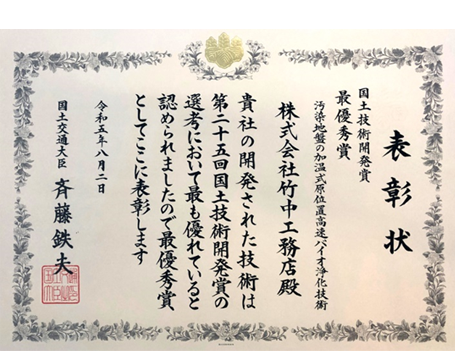 表彰状
国土技術開発賞
最優秀賞
汚染地盤の加温式原位置高速バイオ浄化技術
株式会社竹中工務店殿
貴社の開発された技術は
第二十五回国土技術開発賞の
選考において最も優れていると
認められましたので最優秀賞
としてここに表彰します
令和五年八月二日
国土交通大臣 斉藤鉄夫